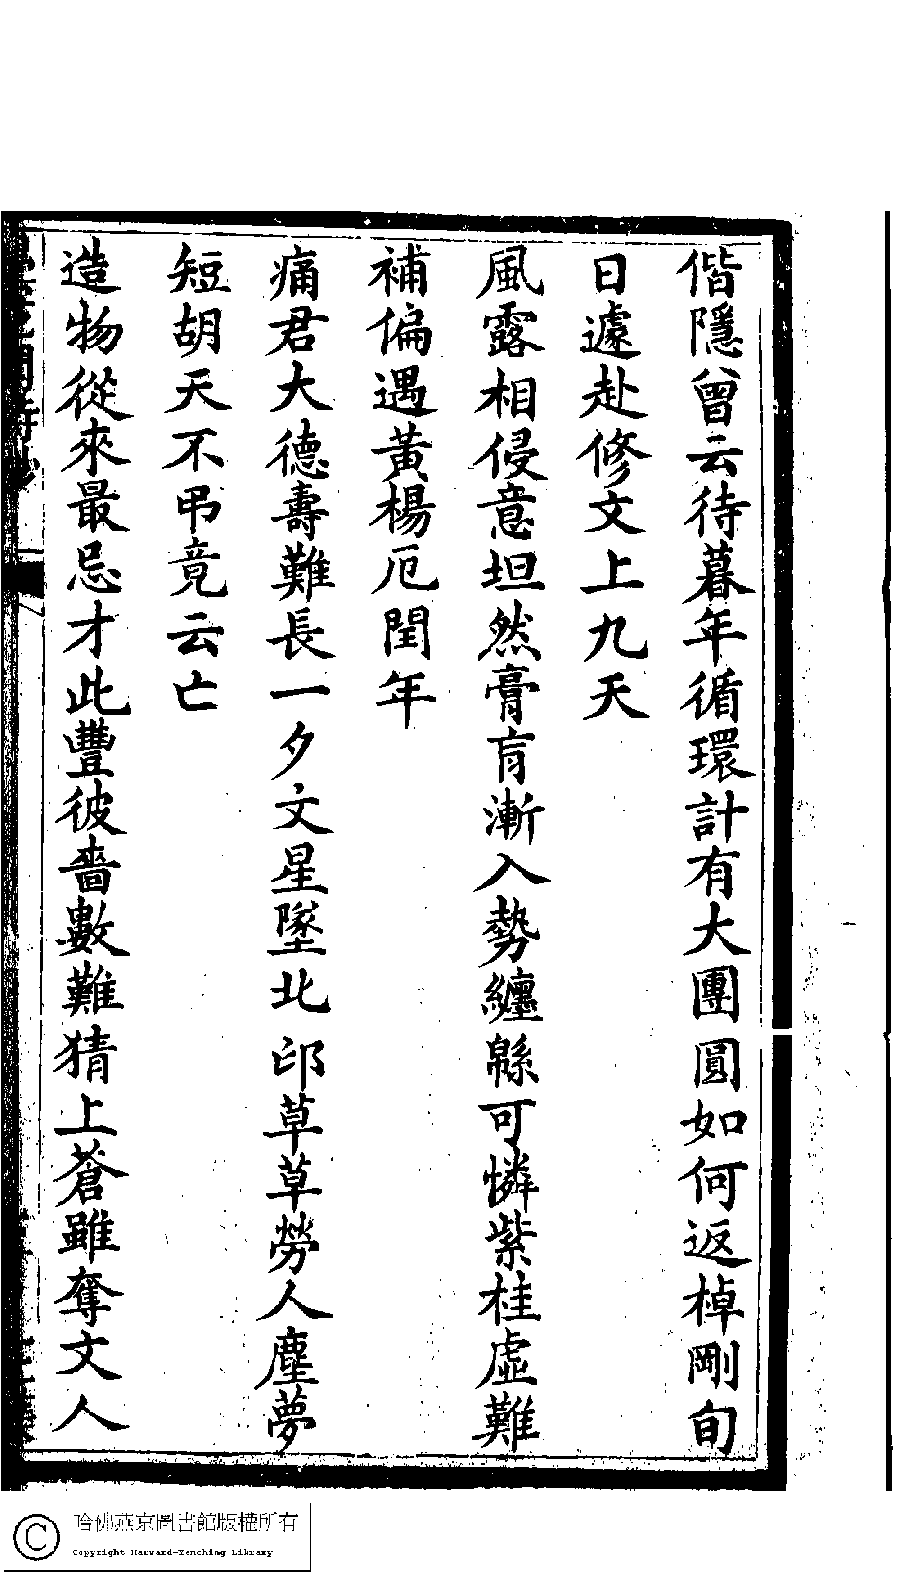 偕隱曾云待暮年循環計有大團圓如何返棹剛旬
日遽赴修文上九天
風露相侵意坦然膏肓漸入勢纏緜可憐紫桂虛難
補偏遇黃楊厄閏年
痛君大德壽難長一夕文星墜北邙草草勞人塵夢
短胡天不弔竟云亡
造物從來最忌才此豐彼嗇數難猜上蒼雖奪文人
哈佛燕京圖書館版權所有
Copyright Harvard-Yenching Library